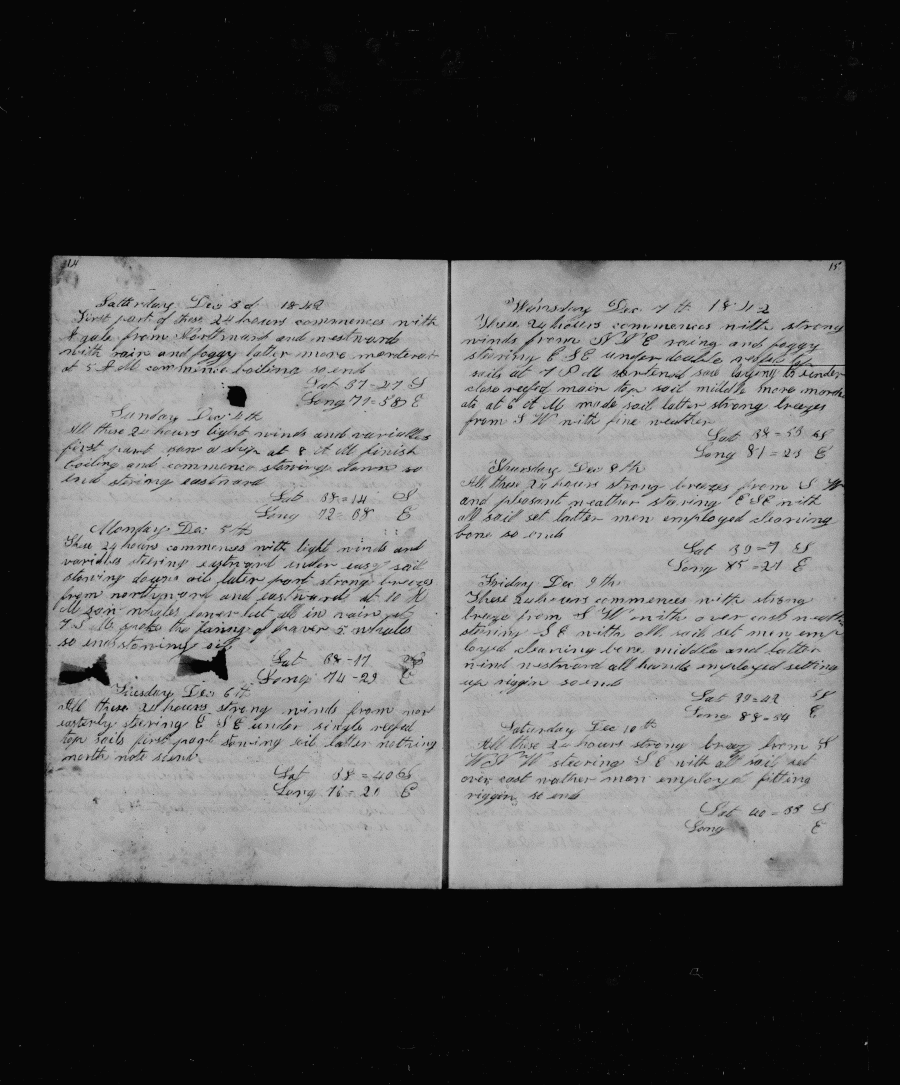 14
Satturday Dec 3d 1842
First part of these 24 hours commences with
A gale from Northward and westward
with rain and foggy latter more moderat
at 5 A M commince boiling so ends
Lat 37=27 S
Long 71=58 E
Sunday Dec 4th
All these 24 hours light winds and variables
first part saw a ship at 8 A M finish
boiling and commence stowing down so
end stering eastward
Lat 38=14 S
Long 72=08 E
Monday Dec 5th
These 24 hours commences with light winds and
variables stering eastward under easy sail
stowing down oil later part strong breezes
from northward and eastward at 10 A
M saw whales lower but all in vain at
7 P M spoke the of 5 whales
so end stowing oil
Lat 38=17 S
Long 74=29 E
Tuesday Dec 6th
All these 24 hours strong winds from nor
easterly stering E S E under single refed
top sails first part stowing oil latter nothing
worth note
Lat 38=40 S
Long 76=20 E
15
Wensday Dec 7th 1842
These 24 hours commences with strong
winds from N N E raing and foggy
stering E S E under double refed top
sails at 7 P M shortened sail under
close reefed main top sail middle more moder
ate at 6 A M made sail latter strong breezes
from S W with fine weather
Lat 38=53 S
Long 81=23 E
Thursday Dec 8th
All these 24 hours strong breezes from S W
and pleasant weather stering E S E with
all sail set latter men employed cleaning
bone so ends
Lat 39=7 S
Long 85=21 E
Friday Dec 9th
These 24 hours commences with strong
breeze from S W with over cast weath
stering S E with all sail set men emp
loyed cleaning bone middle and latter
wind westward all hands employed setting
up riggin so ends
Lat 39=42 S
Long 88=54 E
Saturday Dec 10th
All these 24 hours strong breez from N
W stering S E with all sail set
over cast wather men employed fitting
riggin so ends
Lat 40=38 S
Long E